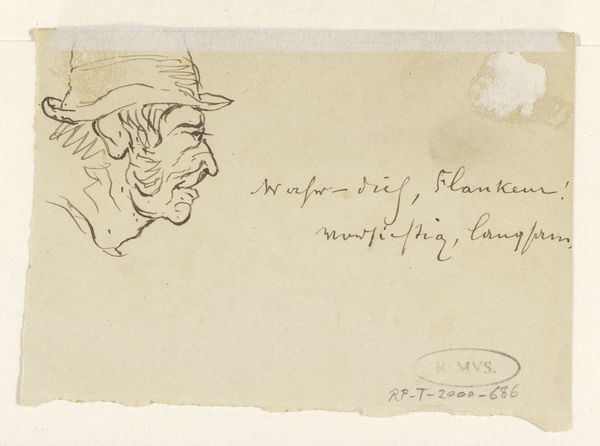 Wahr-dich, Flanken!
vorsichtig, langsam.
R.MVS.
RP-T-2000-686